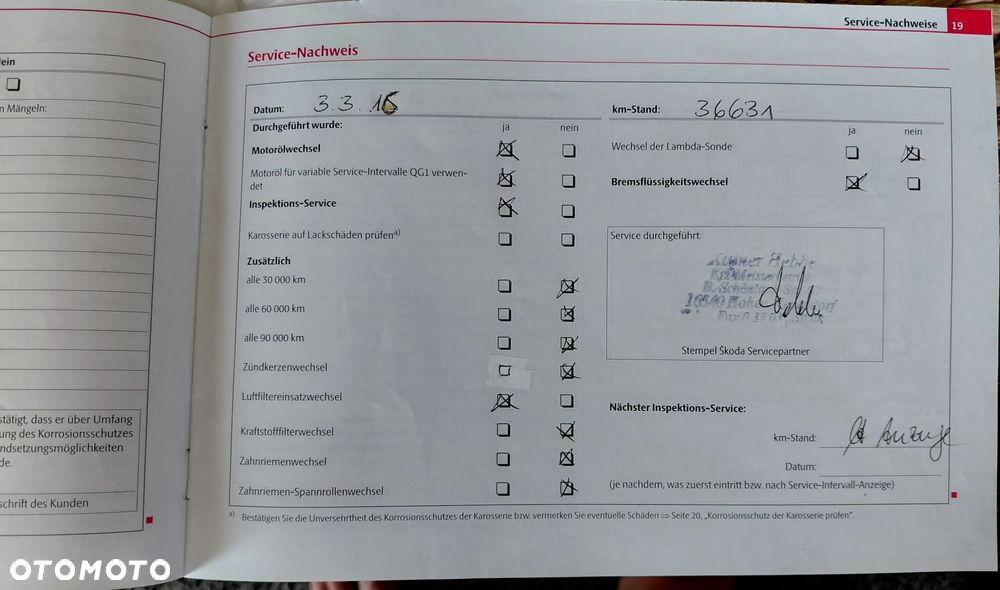 Service-Nachweise 19
ein
n Mängeln:
stätigt, dass er über Umfang
ung des Korrosionsschutzes
ndsetzungsmöglichkeiten
de.
schrift des Kunden
Service-Nachweis
Datum: 3.3.
km-Stand: 36631
Durchgeführt wurde: ja nein
ja nein
Motorölwechsel
Wechsel der Lambda-Sonde
Motoröl für variable Service-Intervalle QG1 verwen-
det
Bremsflüssigkeitswechsel
Inspektions-Service
Karosserie auf Lackschäden prüfen a)
Service durchgeführt:
Zusätzlich
alle 30 000 km
alle 60 000 km
alle 90 000 km
Stempel Škoda Servicepartner
Zündkerzenwechsel
Luftfiltereinsatzwechsel
Nächster Inspektions-Service:
Kraftstofffilterwechsel
km-Stand: Anzeige
Zahnriemenwechsel
Datum:
Zahnriemen-Spannrollenwechsel
(je nachdem, was zuerst eintritt bzw. nach Service-Intervall-Anzeige)
a) Bestätigen Sie die Unversehrtheit des Korrosionsschutzes der Karosserie bzw. vermerken Sie eventuelle Schäden ⇒ Seite 20, „Korrosionsschutz der Karosserie prüfen".
OTOMOTO